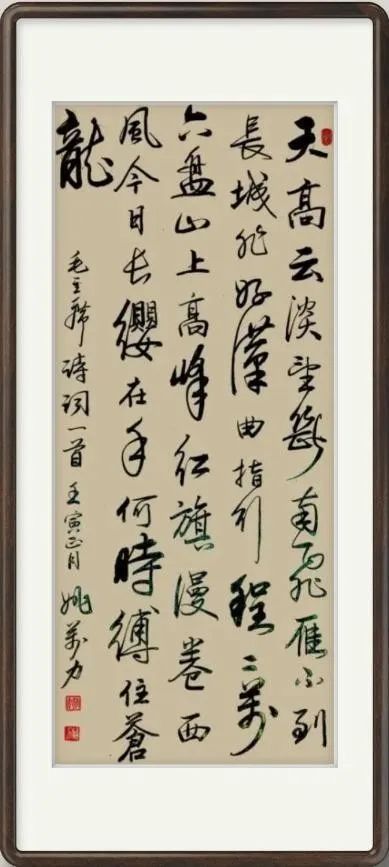 天高云淡望断南飞雁不到
長城非好漢曲指行程二万
六盘山上高峰红旗漫卷西
風今日长缨在手何時缚住蒼
龍
毛主席诗词一首壬寅正月姚万力